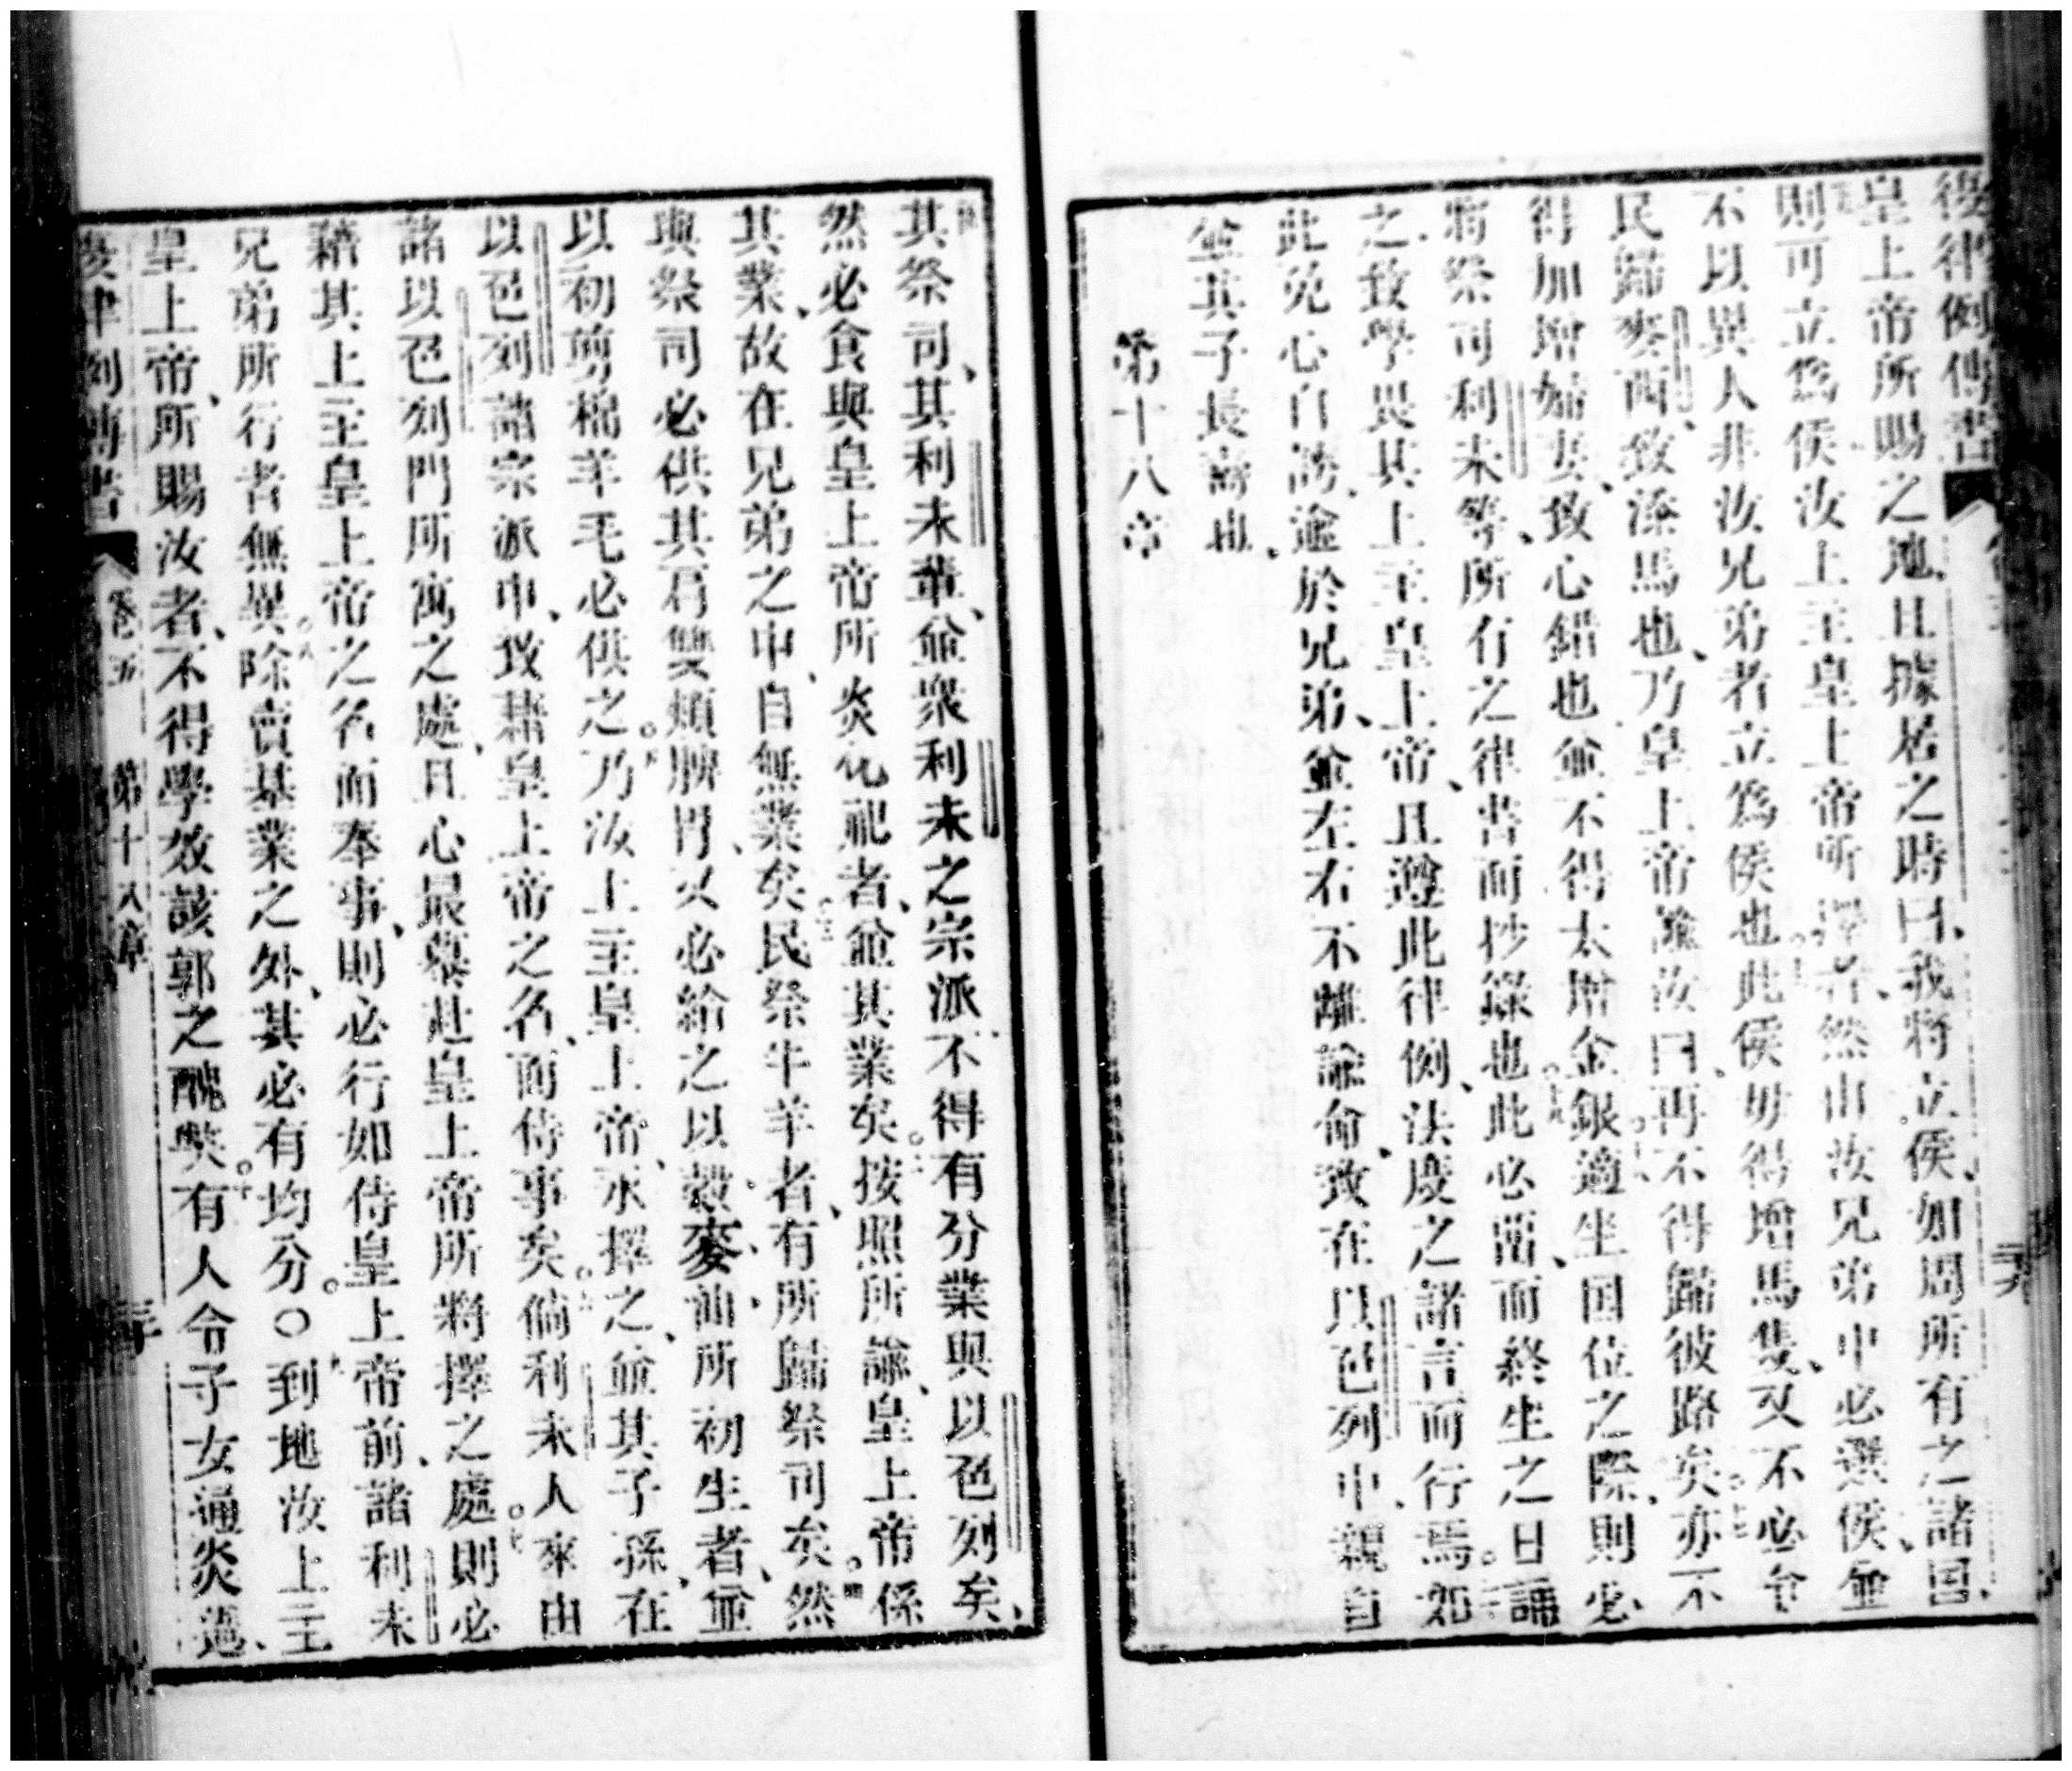 復律例傳書
皇上帝所賜之地、且據居之時曰、我將立侯、如周所有之諸国、
則可立爲侯汝上主皇上帝所擇者、然由汝兄弟中必選侯、並
不以異人非汝兄弟者立爲侯也此侯毋得增馬隻、又不必令
民歸麥西、致添馬也、乃皇上帝諭汝曰、再不得歸彼路矣亦不
得加增婦妻、致心錯也並不得太增金銀適坐国位之際、則必
將祭司利未等、所有之律書而抄錄也此必留、而終生之日誦
之、致學畏其上主皇上帝、且遵此律例、法度之諸言而行焉如
此免心自誇、逾於兄弟、並左右不離諭命、致在以色列中、親自
並其子長壽也、
第十八章
其祭司、其利未輩、並衆利未之宗派不得有分業與以色列矣、
然必食與皇上帝所炎化祀者、並其業矣按照所諭、皇上帝係
其業、故在兄弟之中、自無業矣民祭牛羊者、有所歸祭司矣然
與祭司必供其肩雙頰脾胃、又必給之以穀、麥、油、所初生者、並
以初剪棉羊毛必供之。乃汝上主皇上帝、永擇之、並其子孫、在
以色列諸宗派中、致藉皇上帝之名、而侍事矣倘利未人來由
諸以色列門所寓之處、且心最慕赴皇上帝所將擇之處則必
藉其上主皇上帝之名而奉事、則必行如侍皇上帝前、諸利未
兄弟所行者無異。除賣基業之外、其必有均分。○到地汝上主
皇上帝、所賜汝者、不得學效該郭之醜弊。有人令子女通炎過、
復律例傳書
卷五
第十八章